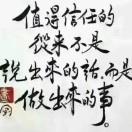 值得信任的
從来不是
説出来的話,而是
做出来的事。